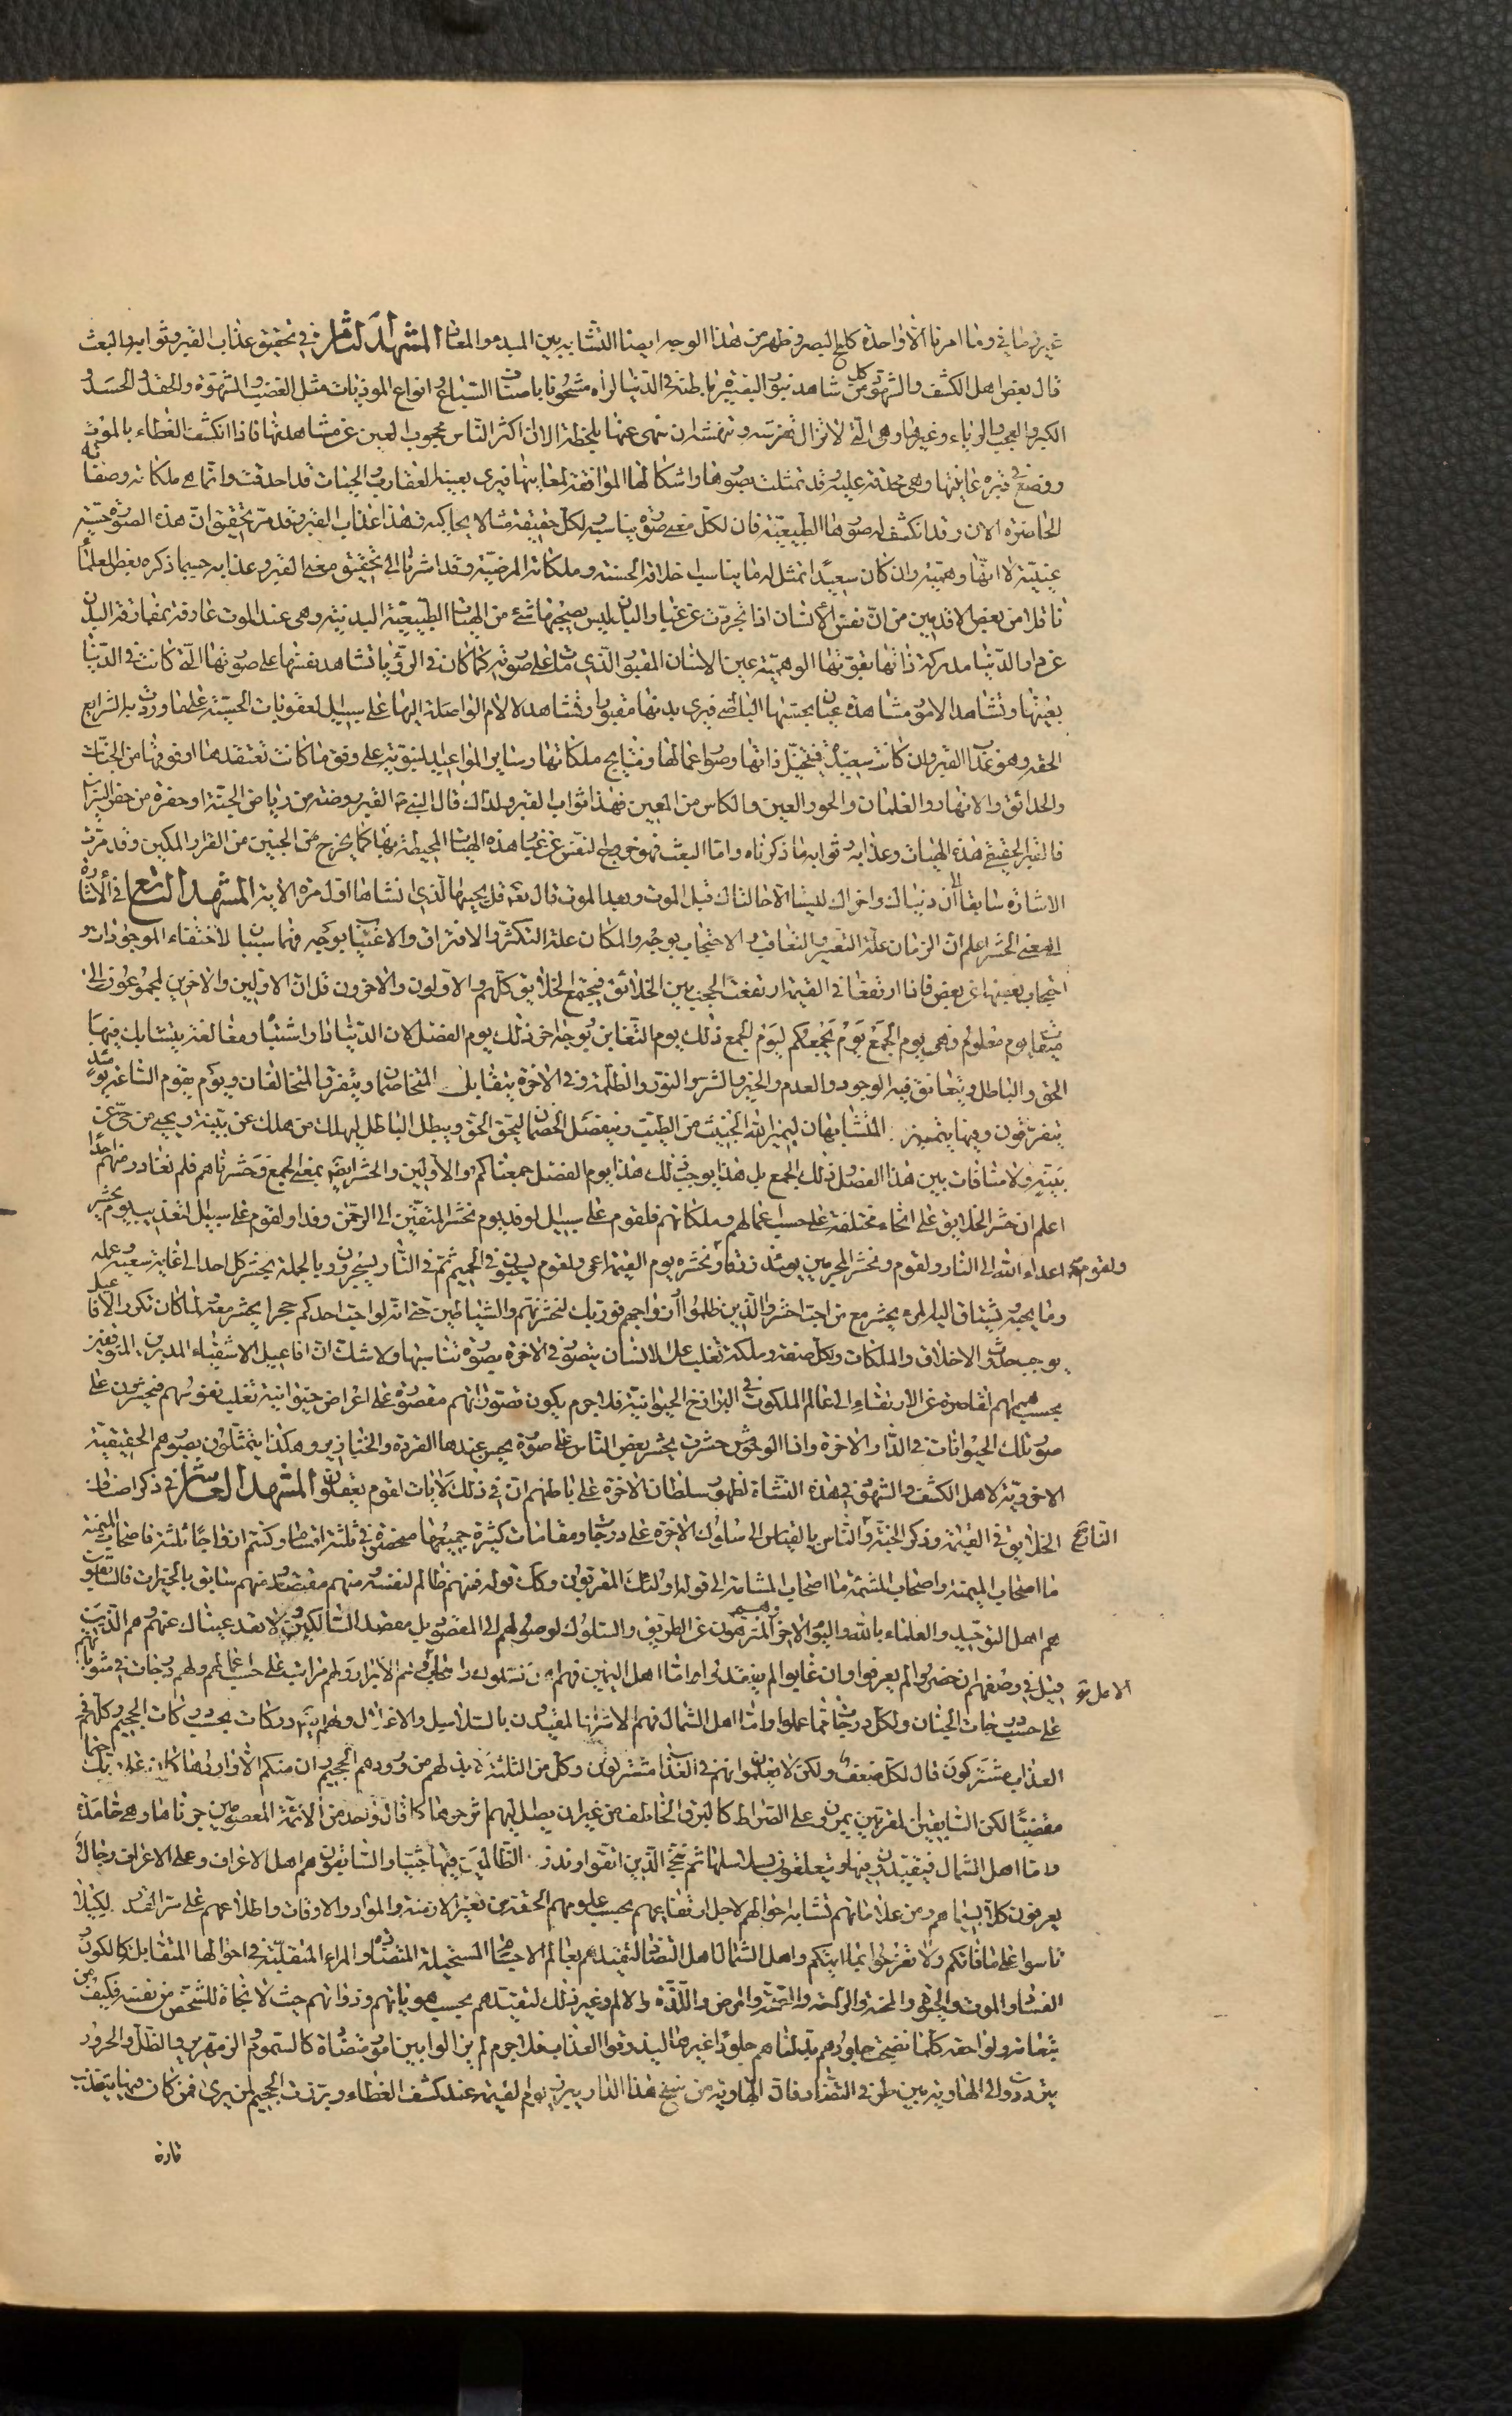 غير زماني وما امرنا الا واحدة كلمح بالبصر وظهر من هذا الوجه ايضا التشابه بين المبدء والمعاد المشهد الثامن في تحقيق عذاب القبر وثوابه والبعث
قال بعض اهل الكشف والشهود كل من شاهد بنور البصيرة باطنه في الدنيا لراه مشحونا باصناف السباع وانواع الموذيات مثل الغضب والشهوة والحقد والحسد و
الكبر والعجب والرياء وغيرها وهي التي لا تزال تفرسه وتنهشه ان سهى عنها بلحظة الا ان اكثر الناس محجوب العين عن مشاهدتها فاذا انكشف الغطاء بالموت
ووضع في قبره عاينها وهي محدقة عليه وقد تمثلت بصورها واشكالها الموافقة لمعانيها فيرى بعينه العقارب والحيات قد احدقت به وانما هي ملكاته وصفاته
الحاضرة الان وقد انكشف له صورها الطبيعية فان لكل معنى صورة يناسبه لكل حقيقة مثالا يحاكيه فهذا عذاب القبر وقد مر تحقيق ان هذه الصورة حسية
عينية لا انها وهمية وان كان سعيدا تمثل له ما يناسب اخلاقه الحسنة وملكاته المرضية وقد اشرنا الى تحقيق معنى القبر وعذابه حسبما ذكره بعض العلماء
ناقلا من بعض الاقدمين من ان نفس الانسان اذا تجردت عن غبار البدن ليس يصحبها شئ من الهيئات الطبيعية البدنية وهي عند الموت عارفة بمفارقة البدن
عن دار الدنيا مدركة ذاتها بقوتها الوهمية عين الانسان المقبور الذي مات على صورته كما كان في الرؤيا تشاهد نفسها على صورتها التي كانت في الدنيا
بعينها وتشاهد الامور مشاهدة عيان بحسها الباطني فيرى بدنها مقبورا وتشاهد الالام الواصلة اليها على سبيل العقوبات الحسية على ما وردت به الشرايع
الحقه وهو عذاب القبر وان كانت سعيدة فيتخيل ذاتها وصور اعمالها ونتايج ملكاتها وساير المواعيد النبوية على وفق ما كانت تعتقدها او فوقها من الجنات
والحدائق والانهار والغلمان والحور العين والكاس من المعين فهذا ثواب القبر ولذلك قال النبي القبر روضة من رياض الجنة او حفرة من حفر النيران
فالقبر الحقيقي هذه الهيئات وعذابه وثوابه ما ذكرناه واما البعث فهو خروج النفس عن غبار هذه الهيئات المحيطة بها كما يخرج من الجنين من القرار المكين وقد مرت
الاشارة سابقا الى ان دنياك واخراك ليستا الا حالتاك قبل الموت وبعد الموت قال تعالى قل يحييها الذي انشاها اول مرة الاية المشهد التاسع في الاشارة
الى معنى الحشر اعلم ان الزمان علة التغير والتعاقب والاحتجاب بوجه والمكان علة التكثر والافتراق والاغتياب بوجه فهما سببان لاختفاء الموجودات و
احتجاب بعضها عن بعض فاذا ارتفعا في القيمة ارتفعت الحجب بين الخلائق فيجتمع الخلايق كلهم والاولون والاخرون قل ان الاولين والاخرين لمجموعون الى
ميقات يوم معلوم وهي يوم الجمع يوم يجمعكم ليوم الجمع ذلك يوم التغابن بوجه اخر ذلك يوم الفصل لان الدنيا دار اشتباه ومغالطة يتشابك فيها
الحق والباطل ويتعانق فيه الوجود والعدم والخير والشر والنور والظلمة وفي الاخرة يتقابل المتخاصمان ويتفرق المتخالفان ويوم تقوم الساعة يومئذ
يتفرقون وفيها يتميز المتشابهان ليميز الله الخبيث من الطيب وينفصل الخصمان ليحق الحق ويبطل الباطل ليهلك من هلك عن بينة ويحيى من حي عن
بينة ولا منافات بين هذا الفصل وذلك الجمع بل هذا يوجب ذلك هذا يوم الفصل جمعناكم والاولين والحشر ايضا بمعنى الجمع وحشرناهم فلم نغادر منهم احدا
اعلم ان حشر الخلايق على انحاء مختلفة على حسب اعمالهم وملكاتهم فلقوم على سبيل الوفد يوم نحشر المتقين الى الرحمن وفدا ولقوم على سبيل التعذيب ويوم يحشر
اعداء الله الى النار ولقوم ونحشر المجرمين يومئذ زرقا ولقوم ونحشره يوم القيمة اعمى ولقوم يسحبون في الحميم ثم في النار يسجرون وبالجملة يحشر كل احد الى غاية سعيه وعمله
وما يحبه يشتاق اليه المرء يحشر مع من احب احشروا الذين ظلموا وازواجهم فوربك لنحشرنهم والشياطين حتى انه لو احب احدكم حجرا يحشر معه لما كان تكرر الافاعيل
يوجب حدوث الاخلاق والملكات وكل صفة وملكة تغلب على الانسان يتصور في الاخرة بصورة تناسبها ولا شك ان افاعيل الاشقياء المدبرين المتوقفين
بحسب هممهم القاصرة عن الارتقاء الى عالم الملكوت في البرازخ الحيوانية فلا جرم يكون تصوراتهم مقصورة على اغراض حيوانية تغلب نفوسهم فيحشرون على
صور تلك الحيوانات في الدار الاخرة واذا الوحوش حشرت يحشر بعض الناس على صورة يحسن عندها القردة والخنازير وهكذا يتمثلون بصورهم الحقيقية
الاخروية لاهل الكشف والشهود في هذه النشاة لظهور سلطان الاخرة على باطنهم ان في ذلك لايات لقوم يعقلون المشهد العاشر في ذكر اصناف
الخلايق في القيمة وذكر الجنة والنار الناس بالقياس الى سلوك الاخرة على درجات ومقامات كثيرة جميعها منحصرة في ثلثة اقسام وكنتم ازواجا ثلثة فاصحاب الميمنة
ما اصحاب الميمنة واصحاب المشئمة ما اصحاب المشامة الى قوله اولئك المقربون وكذا قوله فمنهم ظالم لنفسه ومنهم مقتصد ومنهم سابق بالخيرات فالسابقون
هم اهل التوحيد والعلماء بالله واليوم الاخر المنزهون عن الطريق والسلوك لوصولهم الى المقصود بل مقصد السالكين ولا تعد عيناك عنهم وهم الذين
قيل في وصفهم ان حضروا لم يعرفوا وان غابوا لم يفقدوا واما اهل اليمين فهم الابرار ولهم مراتب على حسب اعمالهم ولهم درجات في مثوباتهم
على حسب درجات الجنان ولكل درجات مما عملوا واما اهل الشمال فهم الاشرار المقيدون بالسلاسيل والاغلال ولهم ايضا دركات بحسب دركات الجحيم وكلهم في
العذاب مشتركون قال لكل ضعف ولكن لا تعلمون وانهم في العذاب مشتركون وكل من الثلثة لا بد لهم من ورودهم الجحيم وان منكم الا واردها كان على ربك حتما
مقضيا لكن السابقين المقربين يمرون على الصراط كالبرق الخاطف من غير ان يصل اليهم اثر حرها كما قال واحد من الائمة المعصومين جزناها وهي خامدة
واما اهل الشمال فيتقيدون فيها ويتعلقون بسلاسلها ثم ننجي الذين اتقوا ونذر الظالمين فيها جثيا والسابقون هم اهل الاعراف وعلى الاعراف رجال
يعرفون كلا بسيماهم ومن علاماتهم تشابه احوالهم لاجل ارتفاعهم بحسب علومهم الحقة من تغير الازمنة والمواد والاوقات واطلاعهم على سر القدر لكيلا
تاسوا على ما فاتكم ولا تفرحوا بما اتيكم واهل الشمال اهل التضاد لتقيدهم بعالم الاجسام المستحيلة المتضادة والمراء المتقلبة في احوالها المتقابلة كالكون
الفساد والموت والحيوة والمحنة والراحة والصحة والمرض واللذة والالم وغير ذلك لتقيدهم بحسب هوياتهم وذواتهم حيث لا نجاة للشخص من نفسه فكيف من
تبعاته ولواحقه كلما نضجت جلودهم بدلناهم جلودا غيرها ليذوقوا العذاب فلا جرم لم يزالوا بين امور متضادة كالسموم والزمهرير والظل والحرور
يترددون الى الهاوية بين طرفي التضاد فان الهاوية من سنخ هذا الدار يبرز يوم القيمة عند كشف الغطاء وبرزت الجحيم لمن يرى فمن كان فيها يتعذب
تارة
ولقوم
النتايج
الاصل